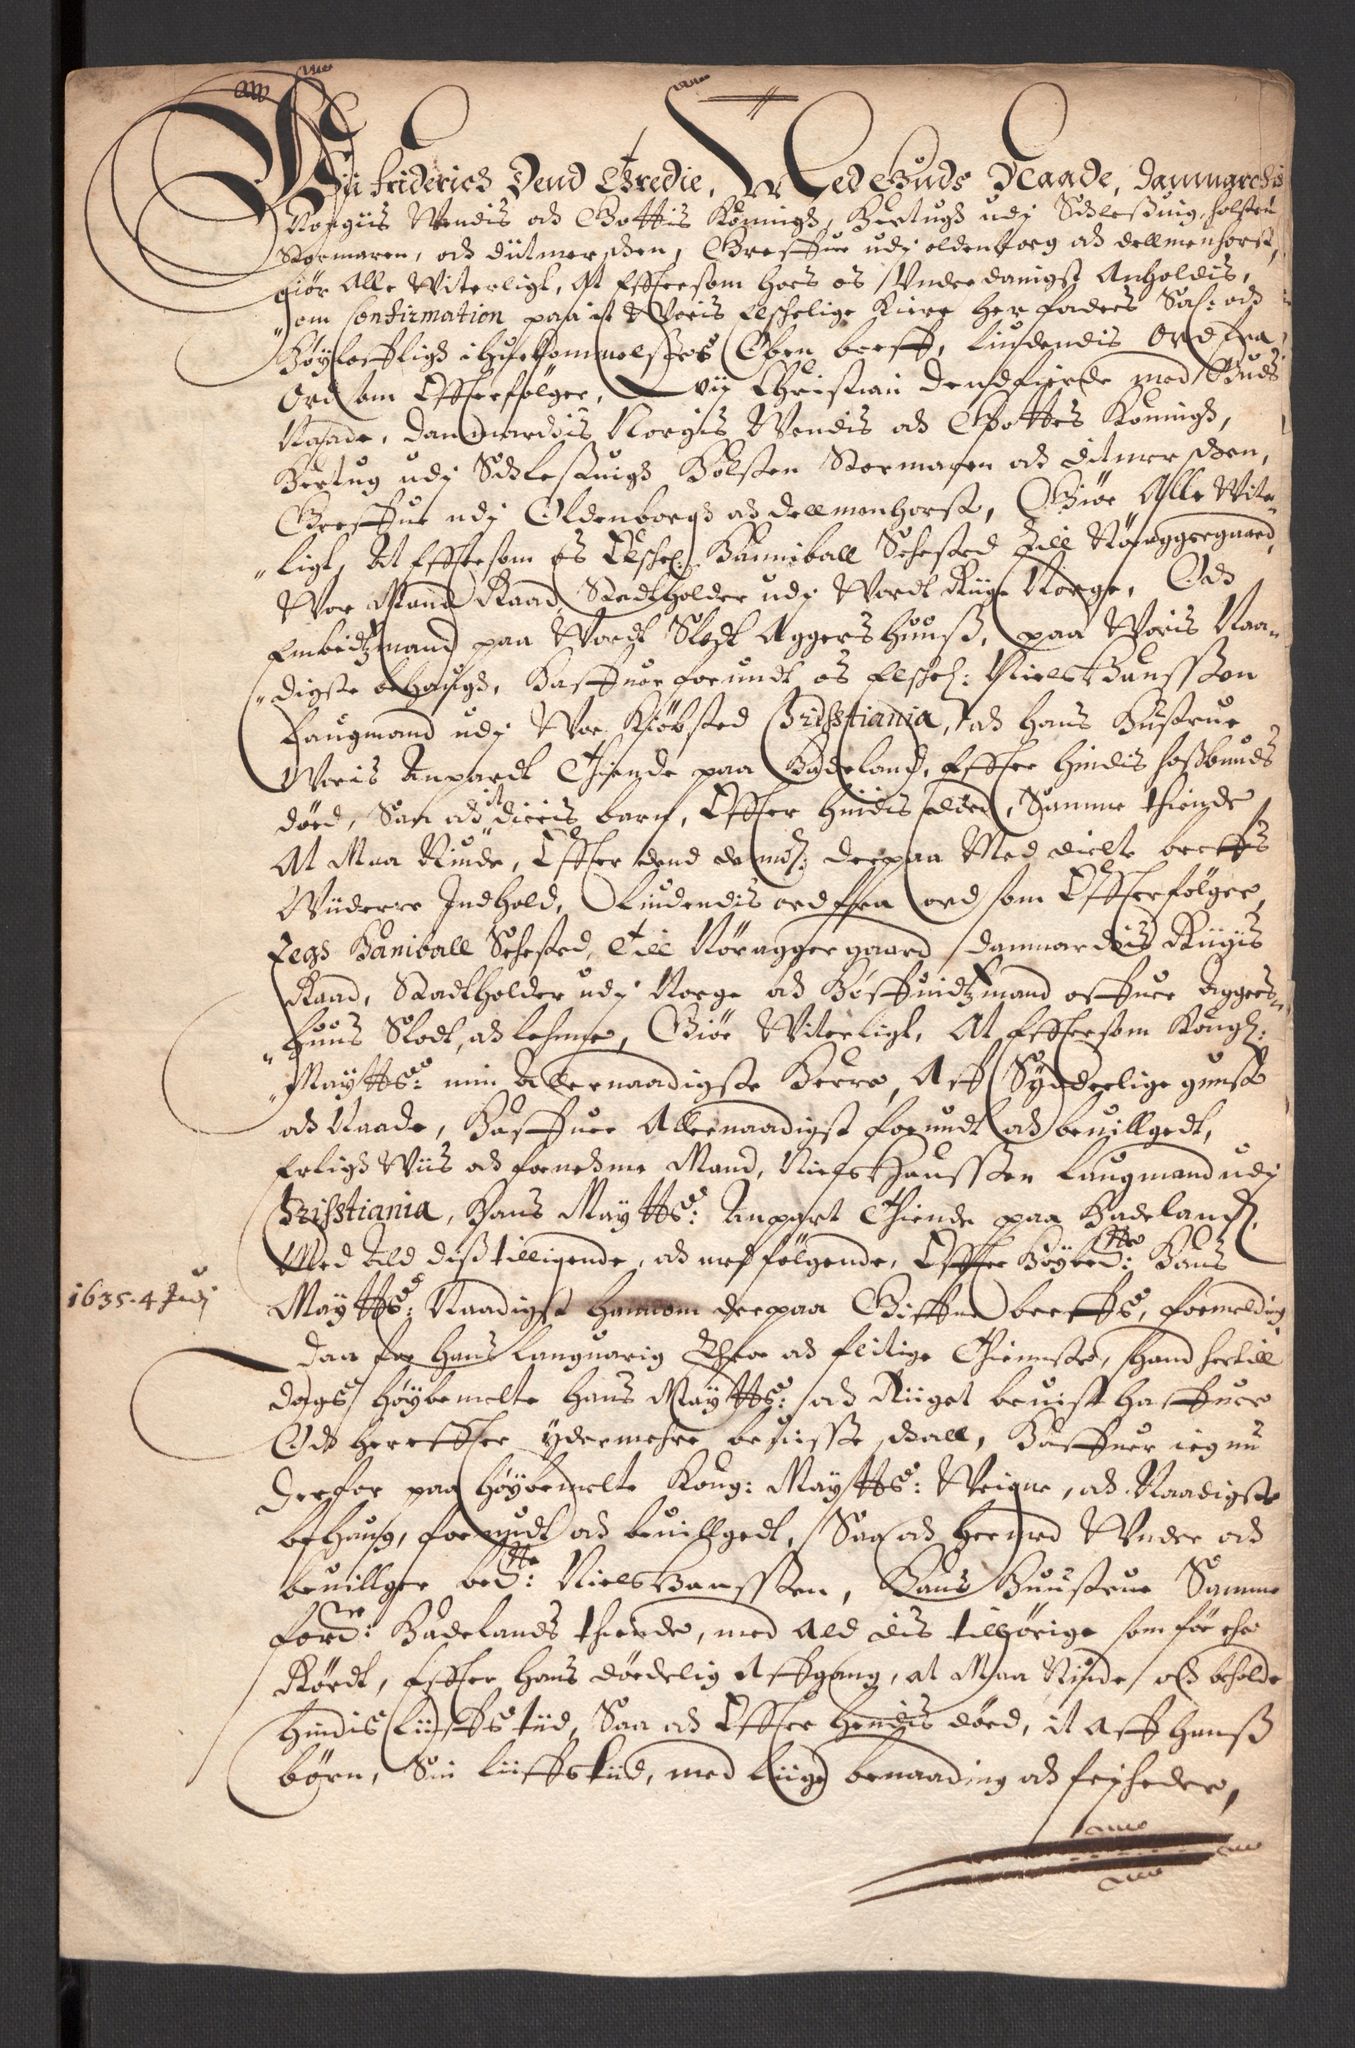 Wii Friderich Dend Tredie, Med Guds Naade, Danmarchis
Norgiis Wendis och Gottis Konningh, Hertugh udj Schleßuig, Holsten
Stormaren, och Dittmerschen, Greffue udj oldenborg och dellmenhorst,
Giør Alle Witerligt, At Effersom hoes os Underdanigst Anholdis,
om Confirmation paa it Woris Elschelige Kiere Her faders Sal: och
Høylofflig ihukommelses Oben breff, Liudendis Ord fra
Ord som Effterfølger, Wii Christian dend fierde med Guds
Naade, Danmarchis Norgis Wendis och Gottes Konningh,
Hertug udj Schleßuigh Holsten Stormaren och Ditmerschen,
Greffue udj Oldenborgh och dellmenhorst, Giøre Alle Witer-
ligt, At Efftersom Os Elschel: Hanniball Sehested Till Nøraggergaard,
Wor Mand Raad, Stadtholder udj Wordt Riige Norge, Och
Embidtzmand paa Wordt Slodt Aggershuuß, paa Woris Naa-
digste behaugh, Haffuer forundt os Elschel: Niels Hanssen
Laugmand udj Wor Kiøbsted Christiania, och hans Hustrue
Woris Anpardt Thiende paa Hadeland, Effter hindis hoßbunds
død, Saa och it dieris barn, Effter hindis død, Samme thiende
At Maa Niude, Effter dend der paa Med dielte breffs
Widere Indhold, Liudendis ord fra ord som Effterfølger,
Jegh Haniball Sehested, Till Nøraggergaard, Danmarchis Riigis
Raad, Stadtholder udj Norge och Høffuidtzmand offuer Aggers-
huus Slodt, och lehnne, Giør Witerligt, At Efftersom Kongl:
Maytts: min Allernaadigste Herre, Aff Synderlige gunst
och Naade, Haffuer Allernaadigst forundt och beuillgedt,
Erligh Wiis och fornehme Mand, Niels Hanssen Laugmand udj
Christiania, Hans Maytts: Anpart Thiende paa Hadeland,
Med Ald diß tilligende, och medfølgende, Effter Høybedtte: Hans
1635. 4 Julj
Maytts: Naadigst hannom derpaa Giffne breffs, formelding
Daa for hans languarig Throe och flitige Thienniste, hand hertill
dags høybemelte hans Maytts: och Riiget beuist haffuer
Och herEffter ydermehre beuisse schall, Haffuer ieg nu
derfor paa høybemelte Kong: Maytts: Weigne, och Naadigste
behaug, forundt och beuillgedt, Saa och hermed Under och
beuillger bedtte: Niels Hanssen, Hans Huustrue Samme
ford: Hadelands thiende, med Ald dis tilhørige som før er
Rørdt, Effter hans dødelig Affgang, at Maa Niude och beholde
hindis Liiffs tiid, Saa och Effter hendis død, it Aff hanß
børn, Sin liiffstiid, med Liige benaading och friheder,